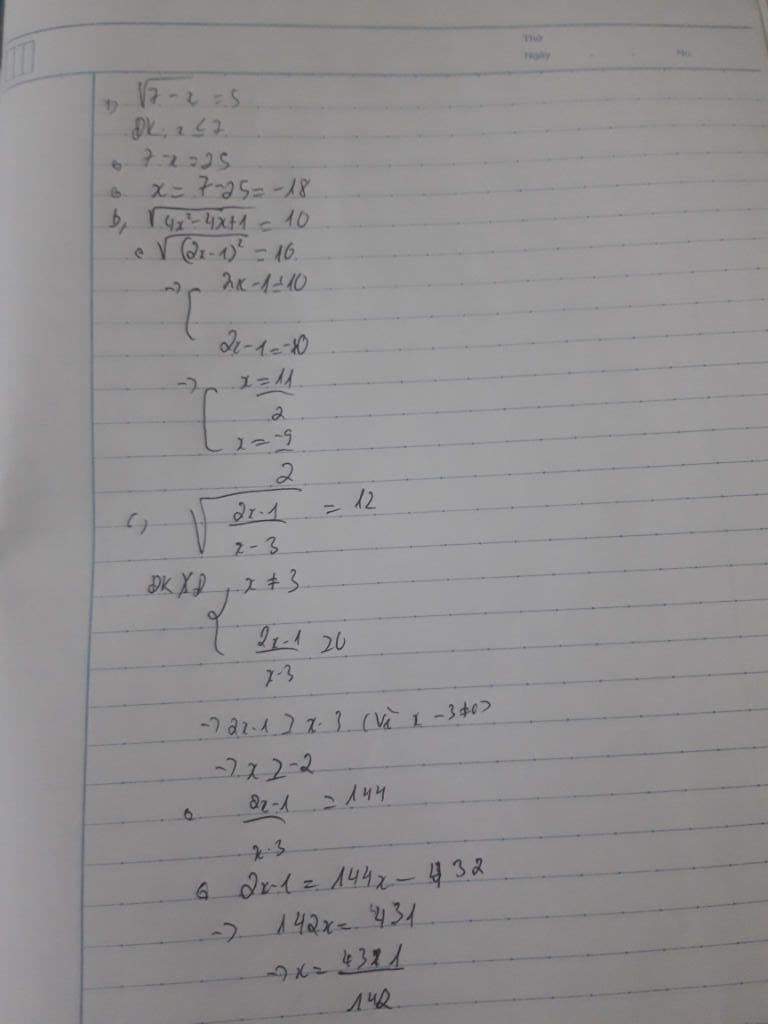 Thứ
Ngày No.
1, √7-x = 5
ĐK, x ≤ 7
7-x = 25
x = 7-25 = -18
b, √4x²-4x+1 = 10
√(2x-1)² = 10
→ [ 2x-1=10
2x-1=-10
→ [ x = 11/2
x = -9/2
c, √(2x-1)/(x-3) = 12
ĐKXĐ { x ≠ 3
(2x-1)/(x-3) ≥ 0
→ 2x-1 ≥ x-3 (Vì x-3≠0)
→ x ≥ -2
(2x-1)/(x-3) = 144
2x-1 = 144x - 432
→ 142x = 431
→ x = 431/142